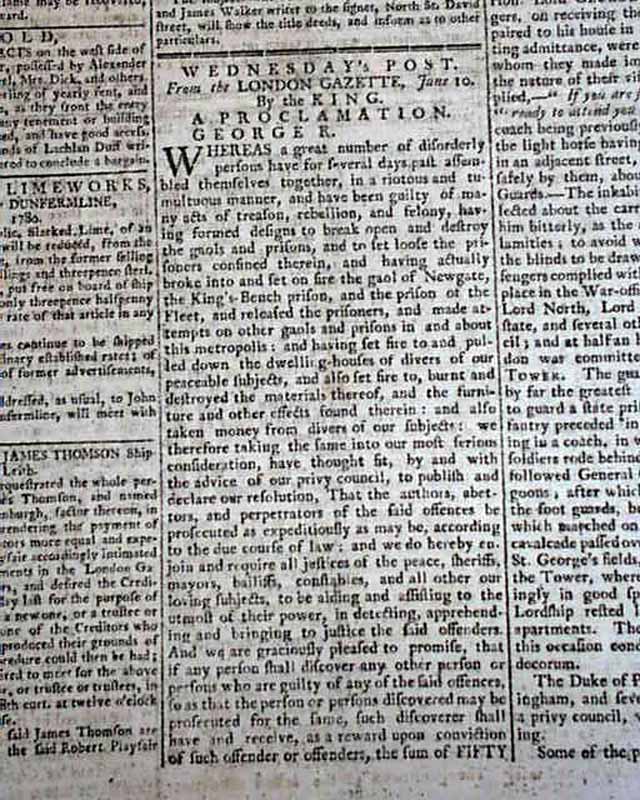 ward.
OLD,
ECTS on the west side of
possessed by Alexander
Mrs. Dick, and others,
sterling of yearly rent, and
as they front the entry
any tenement or building
and have good access,
of Lachlan Duff wri-
to conclude a bargain.
LIMEWORKS,
DUNFERMLINE,
1780.
Slacked Lime, of an
will be reduced, from the
from the former selling
and threepence sterl.
put free on board of ship
only threepence halfpenny
rate of that article in any
continue to be shipped
established rates; of
of former advertisements,
addressed, as usual, to John
will meet with
JAMES THOMSON Ship-
Leith.
sequestrated the whole per-
Thomson, and named
factor thereon, in
rendering the payment of
more equal and expe-
accordingly intimated
in the London Ga-
and desired the Credi-
for the purpose of
a new one, or a trustee or
one of the Creditors who
produced their grounds of
could then be had;
to meet for the above
or trustee or trustees, in
curt. at twelve o'clock
said James Thomson are
the said Robert Playfair
and James Walker writer to the signet, North St. David
street, will show the title deeds, and inform as to other
particulars.
WEDNESDAY's POST.
From the LONDON GAZETTE, June 10.
By the KING.
A PROCLAMATION.
GEORGE R.
WHEREAS a great number of disorderly
persons have for ſeveral days paſt aſſem-
bled themſelves together, in a riotous and tu-
multuous manner, and have been guilty of ma-
ny acts of treaſon, rebellion, and felony, hav-
ing formed deſigns to break open and deſtroy
the gaols and priſons, and to ſet looſe the pri-
ſoners confined therein, and having actually
broke into and ſet on fire the gaol of Newgate,
the King's-Bench priſon, and the priſon of the
Fleet, and releaſed the priſoners, and made at-
tempts on other gaols and priſons in and about
this metropolis: and having ſet fire to and pul-
led down the dwelling-houſes of divers of our
peaceable ſubjects, and alſo ſet fire to, burnt and
deſtroyed the materials thereof, and the furni-
ture and other effects found therein: and alſo
taken money from divers of our ſubjects: we
therefore taking the ſame into our moſt ſerious
conſideration, have thought fit, by and with
the advice of our privy council, to publiſh and
declare our reſolution, That the authors, abet-
tors, and perpetrators of the ſaid offences be
proſecuted as expeditiouſly as may be, according
to the due courſe of law: and we do hereby en-
join and require all juſtices of the peace, ſheriffs,
mayors, bailiffs, conſtables, and all other our
loving ſubjects, to be aiding and aſſiſting to the
utmoſt of their power, in detecting, apprehend-
ing and bringing to juſtice the ſaid offenders.
And we are graciouſly pleaſed to promiſe, that
if any perſon ſhall diſcover any other perſon or
perſons who are guilty of any of the ſaid offences,
ſo as that the perſon or perſons diſcovered may be
proſecuted for the ſame, ſuch diſcoverer ſhall
have and receive, as a reward upon conviction
of ſuch offender or offenders, the ſum of FIFTY
gers, on receiving th
paired to his houſe in
ting admittance, were
whom they made im
the nature of their viſ
plied,—" If you are ſ
" ready to attend you
coach being previouſ
the light horſe having
in an adjacent ſtreet,
ſafely by them, abou
Guards.—The inhabi
fected about the carr
him bitterly, as the
lamities; to avoid w
the blinds to be draw
ſengers complied with
place in the War-offi
Lord North, Lord
ſtate, and ſeveral ot
cil; and at half an h
don was committe
TOWER. The gua
by far the greateſt
to guard a ſtate pri
fantry preceded in
ing in a coach, in w
ſoldiers rode behin
followed General
goons, after which
the foot guards, b
which marched on
cavalcade paſſed ov
St. George's fields,
the Tower, where
ingly in good ſp
Lordſhip reſted
apartments. The
this occaſion cond
decorum.
The Duke of P
ingham, and ſeve
a privy council,
ing.
Some of the p